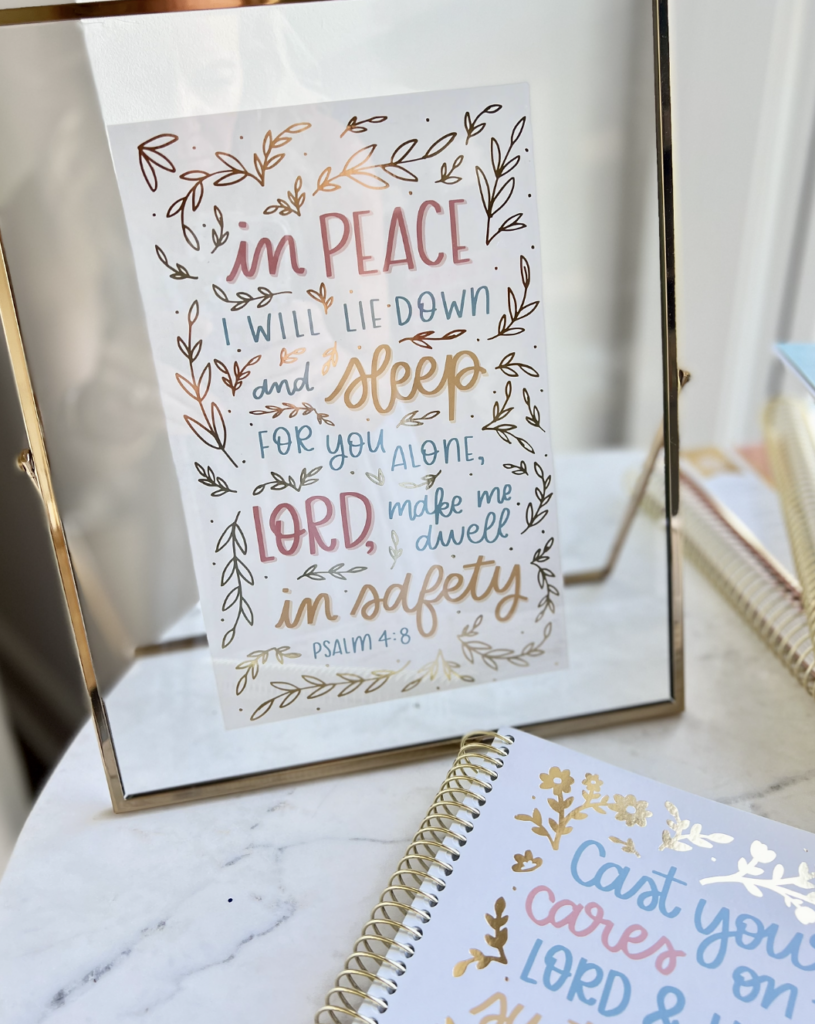 in PEACE
I WILL LIE DOWN
and sleep
FOR YOU ALONE,
LORD, make me
dwell
in safety
PSALM 4:8
Cast your
cares on
LORD &